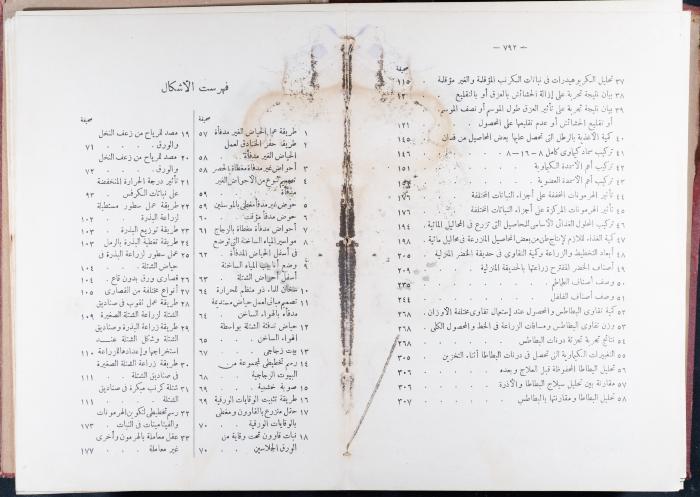 — ٧٩٢ —
صحيفة
٣٧ تحليل الكربوهيدرات فى نباتات الكرنب المؤقلمة والغير مؤقلمة . ١١٥
٣٨ بيان نتيجة تجربة على إزالة الحشائش بالعزق أو بالتقليع
٣٩ بيان نتيجة تجربة على تأثير العزق طول الموسم أو نصف الموسم
أو تقليع الحشائش أو عدم تقليعها على المحصول . ١٢١
٤٠ كمية الأغذية بالرطل التى تحصل عليها بعض المحاصيل من فدان ١٤٥
٤١ تركيب سماد كيماوى كامل ٨ — ١٦ — ٨ . . ١٤٦
٤٢ تركيب أهم الأسمدة الكيماوية . . ١٥١
٤٣ تركيب أهم الأسمدة العضوية . .
٤٤ تأثير الهرمونات المخففة على أجزاء النباتات المختلفة . ١٧٦
٤٥ تأثير الهرمونات المركزة على أجزاء النباتات المختلفة . ١٧٦
٤٦ تركيب المحلول الغذائى الأساسى للمحاصيل التى تزرع فى المحاليل المائية . ١٩٤
٤٧ كمية الغذاء اللازم لإنتاج طن من بعض المحاصيل المنزرعة فى محاليل مائية . ١٩٨
٤٨ أبعاد التخطيط والزراعة وكمية التقاوى فى حديقة الخضر المنزلية ٢٠٥
٤٩ أصناف الخضر المقترح زراعتها بالحديقة المنزلية . ٢٠٩
٥٠ وصف أصناف الطماطم . . ٢٣٥
٥١ وصف أصناف الفلفل . . ٢٤٤
٥٢ كمية تقاوى البطاطس والمحصول عند إستعمال تقاوى مختلفة الأوزان . ٢٦٨
٥٣ وزن تقاوى البطاطس ومسافات الزراعة فى الخط والمحصول الكلى . ٢٦٨
٥٤ نتائج تجربة تجزئة درنات البطاطس . . ٢٦٨
٥٥ التغييرات الكيماوية التى تحصل فى درنات البطاطا أثناء التخزين . ٣٠٥
٥٦ تحليل البطاطا المحفوظة قبل العلاج وبعده . . ٣٠٦
٥٧ مقارنة بين تحليل سيلاج البطاطا والأذرة . . ٣٠٦
٥٨ تحليل البطاطا ومقارنتها بالبطاطس . . ٣٠٧
فهرست الاشكال
صحيفة
١ طريقة عمل الحياض الغير مدفأة ٥٧
٢ طريقة حفر الخنادق لعمل
الحياض الغير مدفأة . ٥٨
٣ أحواض غير مدفأة مغطاة بالحصر ٥٨
٤ تصميم نوع من الأحواض الغير
مدفأة . . ٥٩
٥ حوض غير مدفأ مغطى بالموسلين ٥٩
٦ حوض مدفأ مؤقت . ٦٠
٧ أحواض مدفأة مغطاة بالزجاج ٦١
٨ مواسير المياه الساخنة التى توضع
فى أسفل الحياض المدفأة . ٦٢
٩ وضع أنابيب المياه الساخنة
أسفل أحواض الشتلة . ٦٣
١٠ سخان للماء ذو منظم للحرارة ٦٤
١١ تصميم مبانى لعمل حياض مستديمة
مدفأة بالهواء الساخن . ٦٤
١٢ حياض تدفئة الشتلة بواسطة
الهواء الساخن . ٦٥
١٣ بيت زجاجى . . ٦٧
١٤ رسم تخطيطى لمجموعة من
البيوت الزجاجية . ٦٨
١٥ صوبة خشبية . . ٦٩
١٦ طريقة تثبيت الوقايات الورقية ٦٩
١٧ حقل منزرع بالقاوون ومغطى
بالوقايات الورقية . ٧٠
١٨ نبات قاوون تحت وقاية من
الورق الجلاسين . ٧٠
صحيفة
١٩ مصد للرياح من زعف النخل
والورق . . ٧١
٢٠ مصد للرياح من زعف النخل
والورق . . ٧٢
٢١ تأثير درجة الحرارة المنخفضة
على نباتات الكرفس . ٩٣
٢٢ طريقة عمل سطور مستطيلة
لزراعة البذرة . ١٠٢
٢٣ طريقة توزيع البذرة . ١٠٣
٢٤ طريقة تغطية البذرة بالرمل ١٠٣
٢٥ عمل سطور لزراعة البذرة فى
حياض الشتلة . ١٠٤
٢٦ قصارى ورق بدون قاع . ١٠٤
٢٧ أنواع مختلفة من القصارى ١٠٥
٢٨ طريقة عمل ثقوب فى صناديق
الشتلة لزراعة الشتلة الصغيرة ١٠٩
٢٩ طريقة زراعة البذرة وصناديق
الشتلة وشكل الشتلة عند
استخراجها وإعدادها للزراعة ١١٠
٣٠ طريقة زراعة الشتلة الصغيرة
فى صناديق الشتلة . ١١١
٣١ شتلة كرنب مبكرة فى صناديق
الشتلة . . ١١١
٣٢ رسم تخطيطى لتكوين الهرمونات
والفيتامينات فى النبات ١٧٣
٣٣ عقل معاملة بالهرمون وأخرى
غير معاملة . . ١٧٧